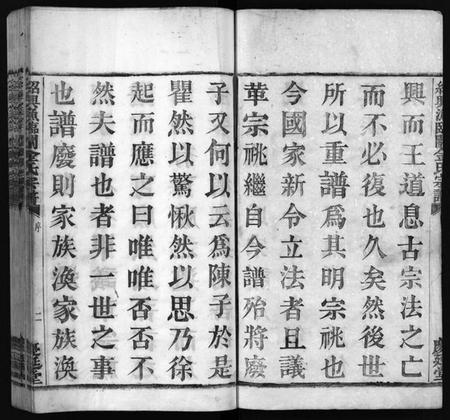 興而王道息古宗法之亡
而不必復也久矣然後世
所以重譜爲其明宗祧也
今國家新令立法者且議
華宗祧繼自今譜殆將廢
子又何以云爲陳子於是
瞿然以驚愀然以思乃徐
起而應之曰唯唯否否不
然夫譜也者非一世之事
也譜廢則家族渙家族渙
序
二